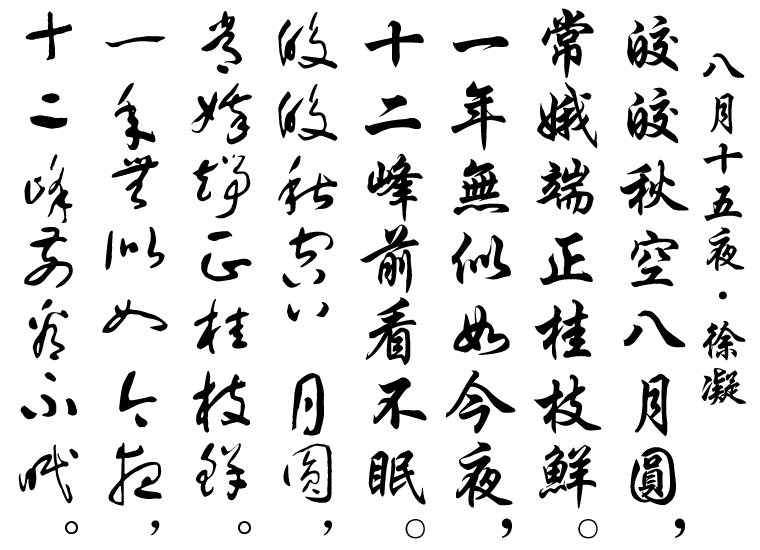 八月十五夜·徐凝
皎皎秋空八月圓，
常娥端正桂枝鮮。
一年無似如今夜，
十二峰前看不眠。
皎皎秋空八月圓，
常娥端正桂枝鮮。
一年無似如今夜，
十二峰前看不眠。